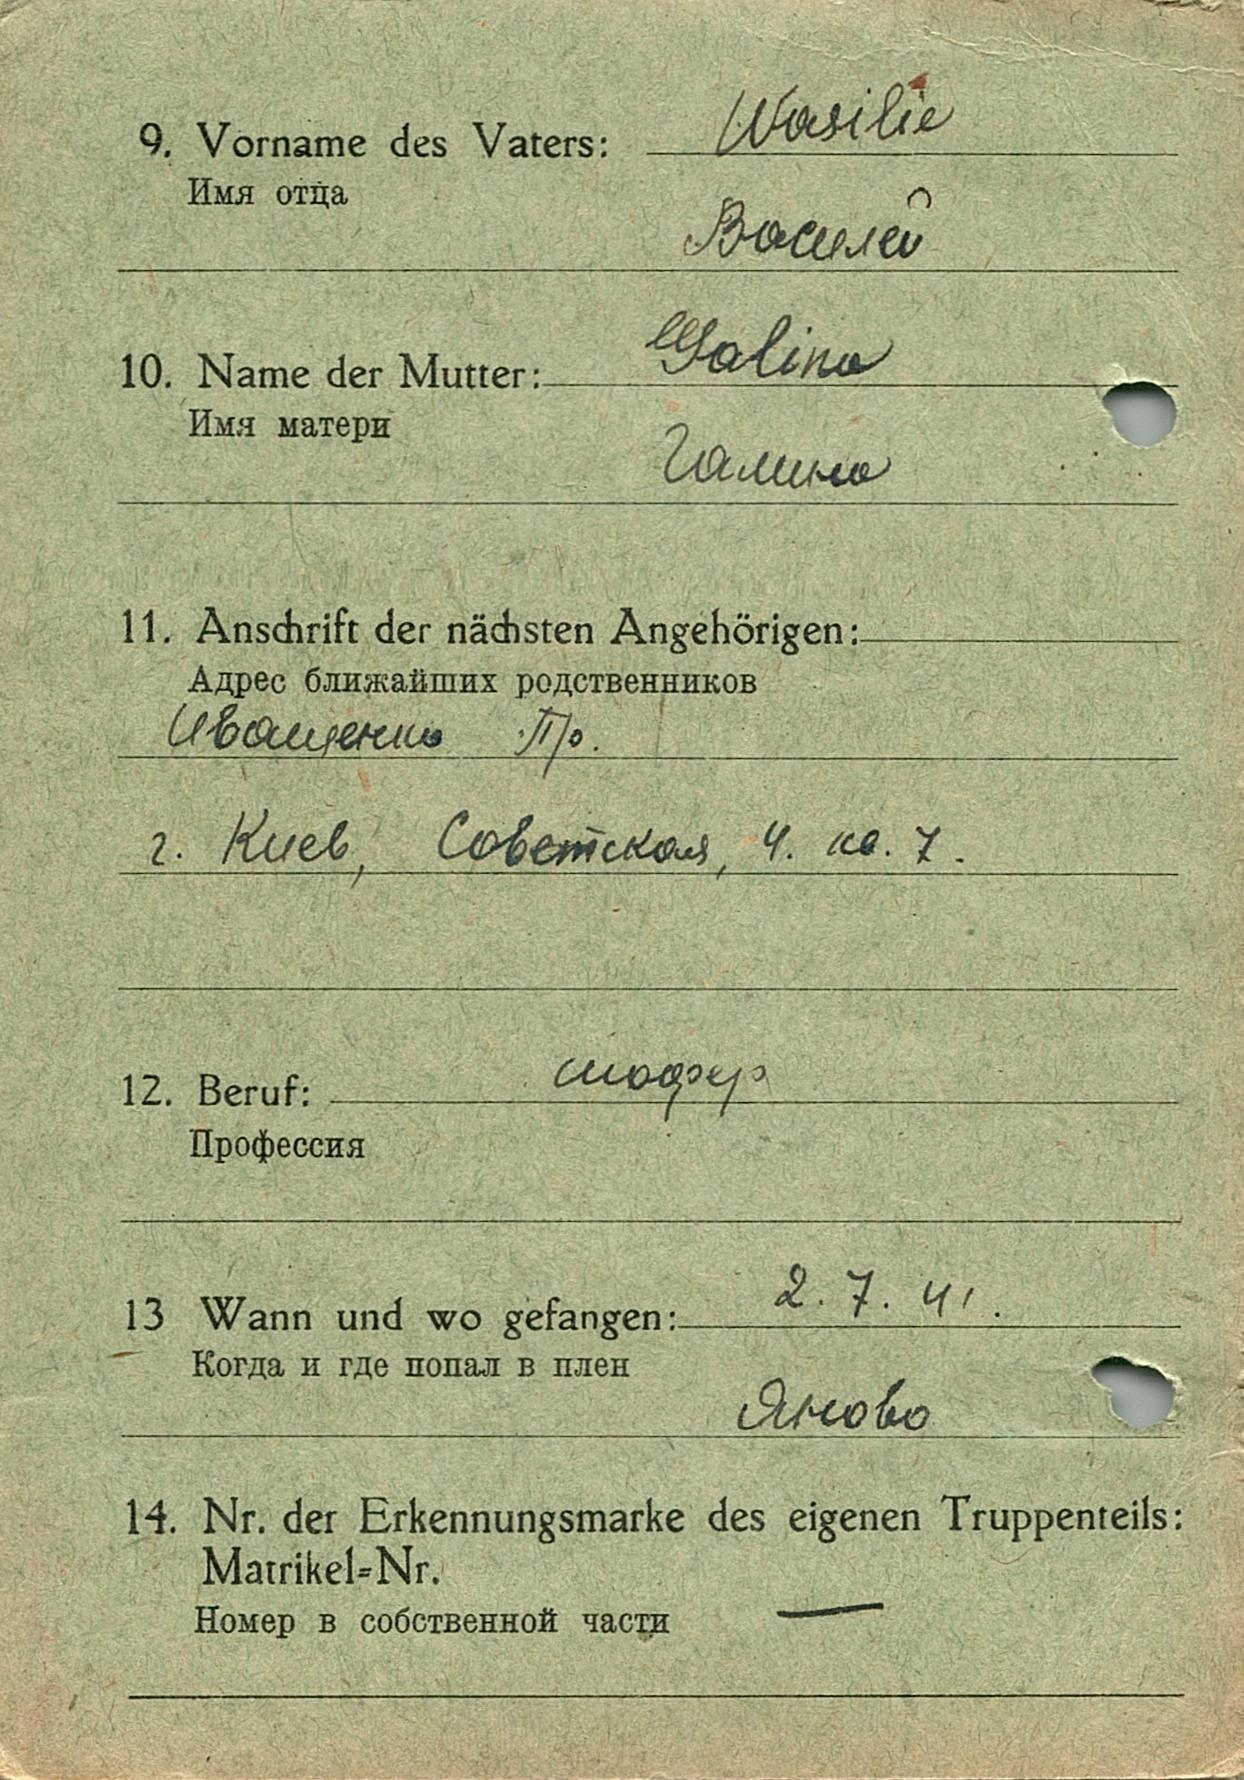 9. Vorname des Vaters: Wasilie
Имя отца
Василей
10. Name der Mutter: Galina
Имя матери
Галина
11. Anschrift der nächsten Angehörigen:
Адрес ближайших родственников
Иващенко Пр.
г. Киев, Советская, 4. кв. 7.
12. Beruf: шофер
Профессия
13 Wann und wo gefangen: 2. 7. 41.
Когда и где попал в плен
Яново
14. Nr. der Erkennungsmarke des eigenen Truppenteils:
Matrikel=Nr.
Номер в собственной части —